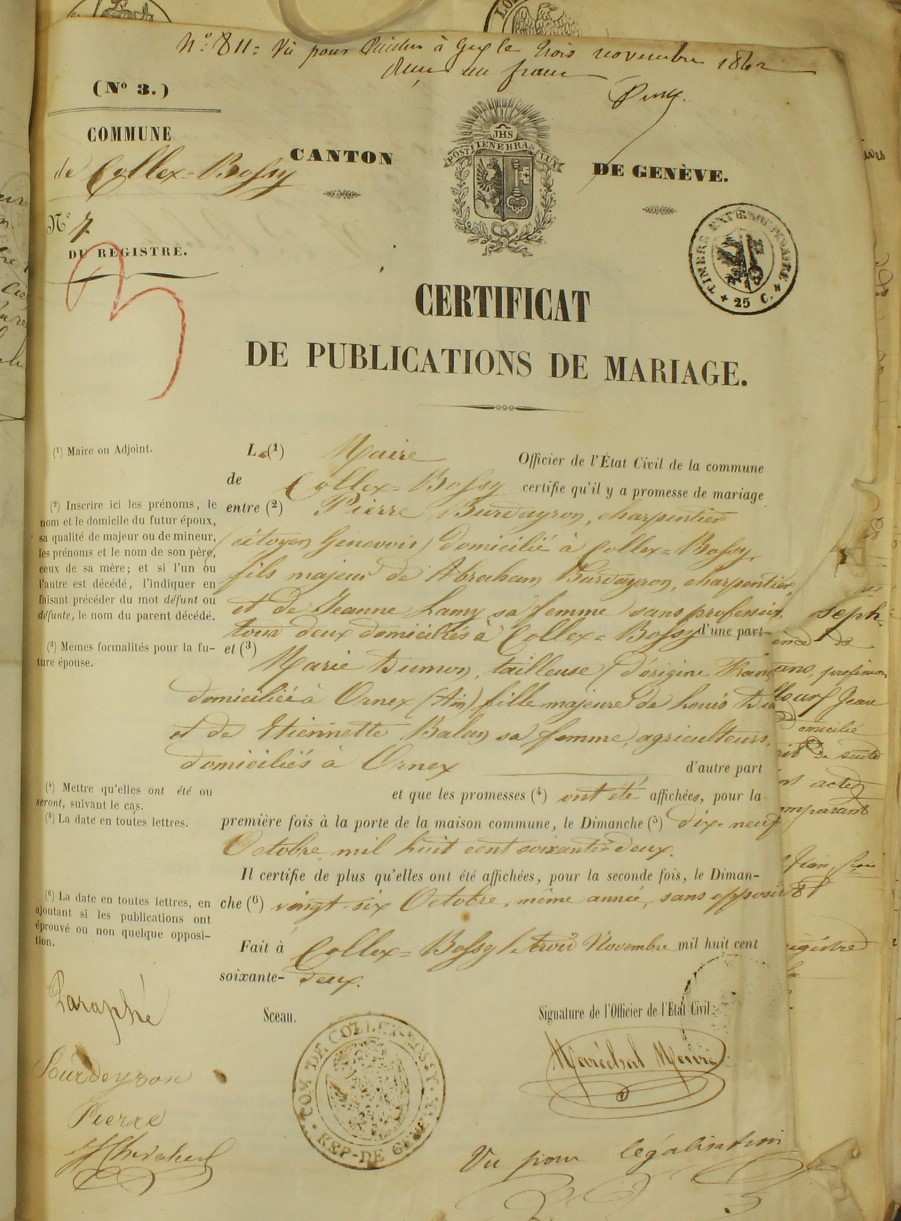 N° 811 = Vu pour timbre à Gex le trois novembre 1862
reçu un franc
(N° 3.)
COMMUNE
de Collex-Bossy
N° 7
DU REGISTRE.
CANTON
DE GENÈVE.
JHS
POST TENEBRAS LUX
TIMBRE EXTRAORDINAIRE
25 C.
CERTIFICAT
DE PUBLICATIONS DE MARIAGE.
(1) Maire ou Adjoint.
(2) Inscrire ici les prénoms, le
nom et le domicile du futur époux,
sa qualité de majeur ou de mineur,
les prénoms et le nom de son père,
ceux de sa mère; et si l'un ou
l'autre est décédé, l'indiquer en
faisant précéder du mot défunt ou
défunte, le nom du parent décédé.
(3) Mêmes formalités pour la fu-
ture épouse.
(4) Mettre qu'elles ont été ou
seront, suivant le cas.
(5) La date en toutes lettres.
(6) La date en toutes lettres, en
ajoutant si les publications ont
éprouvé ou non quelque opposi-
tion.
Le (1) Maire Officier de l'État Civil de la commune
de Collex-Bossy certifie qu'il y a promesse de mariage
entre (2) Pierre Burdayron, charpentier
(citoyen Genevois) domicilié à Collex-Bossy,
fils majeur de Abraham Burdayron, charpentier,
et de Jeanne Lamy sa femme sans profession
tous deux domiciliés à Collex-Bossy d'une part
et (3) Marie Dumon, tailleuse (d'origine Franç
domiciliée à Ornex (Ain) fille majeure de Louis Du
et de Etiennette Balan sa femme, agriculteurs,
domiciliés à Ornex d'autre part
et que les promesses (4) ont été affichées, pour la
première fois à la porte de la maison commune, le Dimanche (5) dix-neuf
Octobre mil huit cent soixante-deux.
Il certifie de plus qu'elles ont été affichées, pour la seconde fois, le Diman-
che (6) vingt-six Octobre, même année, sans opposition
Fait à Collex-Bossy le trois Novembre mil huit cent
soixante-deux.
Sceau.
Signature de l'Officier de l'État Civil:
Maréchal Maire
COM. DE COLLEX-BOSSY
REP. DE GENÈVE
Paraphé
Bourdeyron
Pierre
Vu pour légalisation